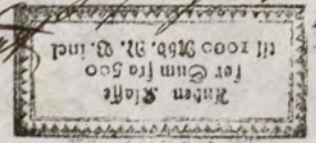 Anden Klasse
for Sum fra 500
til 1000 Rbd. N. V. incl